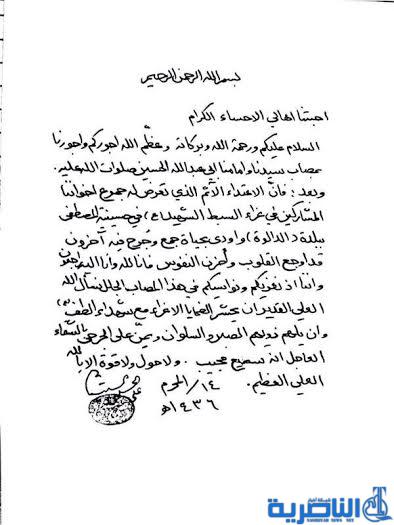 بسم الله الرحمن الرحيم
احبتنا اهالي الاحساء الكرام
السلام عليكم ورحمة الله وبركاته وعظّم الله اجوركم واجورنا
بمصاب سيدنا وامامنا ابي عبدالله الحسين صلوات الله عليه.
وبعد: فانّ الاعتداء الآثم الذي تعرض له جموع اخواننا
المشاركين في عزاء السبط الشهيد (ع) في حسينية المصطفى
ببلدة (الدالوة) واودى بحياة جمع وجُرح فيه آخرون
قد اوجع القلوب وأحزن النفوس فانا لله وانا اليه راجعون
واننا اذ نعزّيكم ونواسيكم في هذا المصاب الجلل نسأل الله
العلي القدير ان يحشر الضحايا الاعزاء مع شهداء الطف
وان يلهم ذويهم الصبر والسلوان ويمنّ على الجرحى بالشفاء
العاجل انه سميع مجيب. ولا حول ولا قوة الا بالله
العلي العظيم.
١٤/المحرم
١٤٣٦هـ
شبكة اخبار
الناصرية
NASIRIYAH NEWS NET